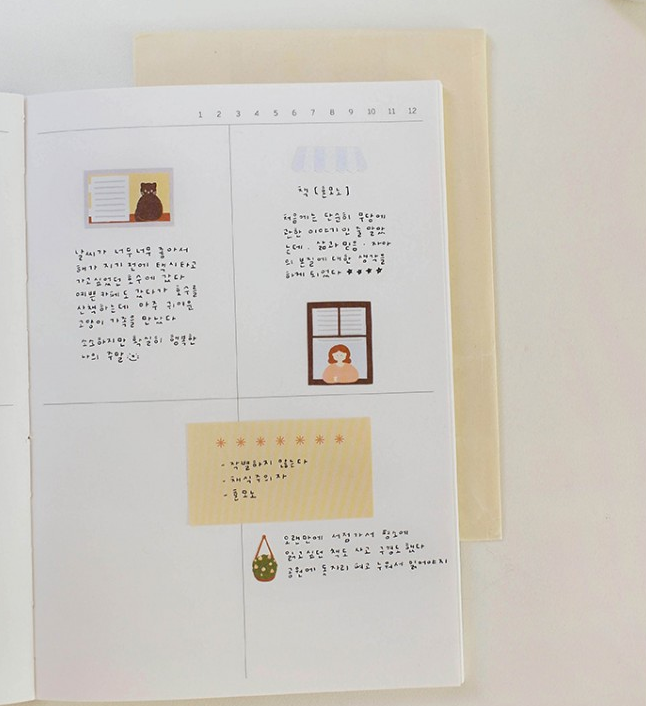 1 2 3 4 5 6 7 8 9 10 11 12
날씨가 너무너무 좋아서
해가 지기 전에 택시타고
가고싶었던 호수에 갔다
예쁜 카페도 갔다가 호수를
산책하는데 아주 귀여운
고양이 가족을 만났다
소소하지만 확실히 행복한
나의 주말
책 [혼모노]
처음에는 단순히 무당에
관한 이야기인 줄 알았
는데 · 삶과 믿음 · 자아
의 본질에 대해 생각을
하게 되었다 ★★★★
- 작별하지 않는다
- 채식주의자
- 혼모노
오랜만에 서점가서 평소에
읽고싶던 책도 사고 구경도 했다
공원에 돗자리 펴고 누워서 읽어야지